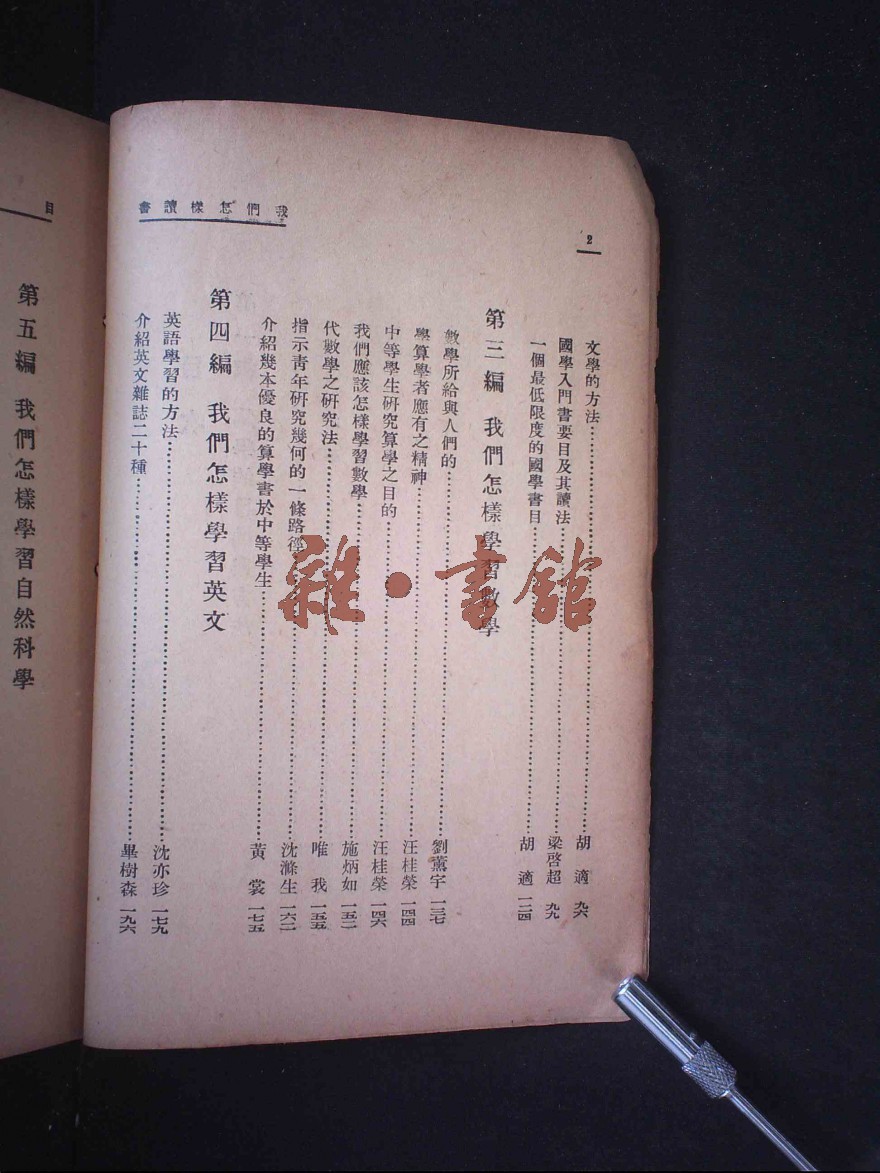 我們怎樣讀書
2
文學的方法 胡適 九六
國學入門書要目及其讀法 梁啓超 九九
一個最低限度的國學書目 胡適 一二四
第三編 我們怎樣學習數學
數學所給與人們的 劉薰宇 一三七
學算學者應有之精神 汪桂榮 一四四
中等學生研究算學之目的 汪桂榮 一四六
我們應該怎樣學習數學 施炳如 一五二
代數學之研究法 唯我 一五五
指示青年研究幾何的一條路徑 沈滌生 一六二
介紹幾本優良的算學書於中等學生 黃裳 一七五
第四編 我們怎樣學習英文
英語學習的方法 沈亦珍 一七九
介紹英文雜誌二十種 畢樹森 一九六
目
第五編 我們怎樣學習自然科學
雜·書館